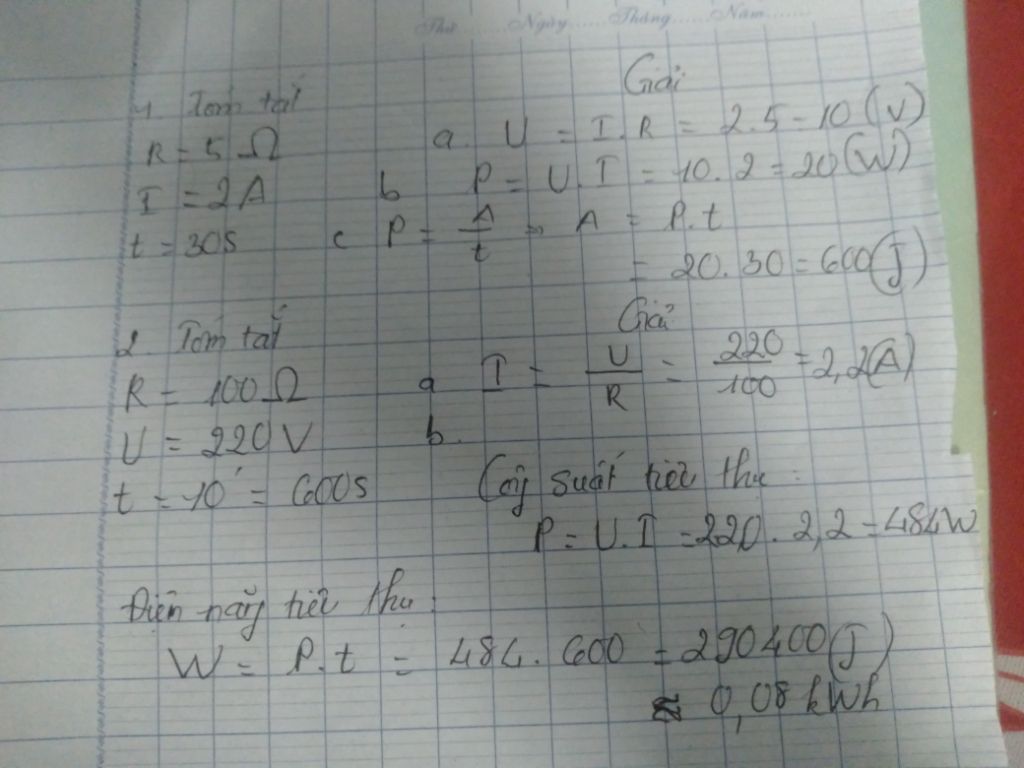 Thứ Ngày Tháng Năm
1 Tóm tắt Giải
R = 5 Ω a. U = I.R = 2.5 = 10 (V)
I = 2A b P = U.I = 10.2 = 20 (W)
t = 30s c P = A/t → A = P.t
= 20.30 = 600 (J)
2. Tóm tắt Giải
R = 100 Ω a I = U/R = 220/100 = 2,2 (A)
U = 220V b.
t = 10' = 600s Côg suất tiêu thụ :
P = U.I = 220.2,2 = 484W
Điện năg tiêu thụ :
W = P.t = 484.600 = 290400 (J)
≈ 0,08 kWh